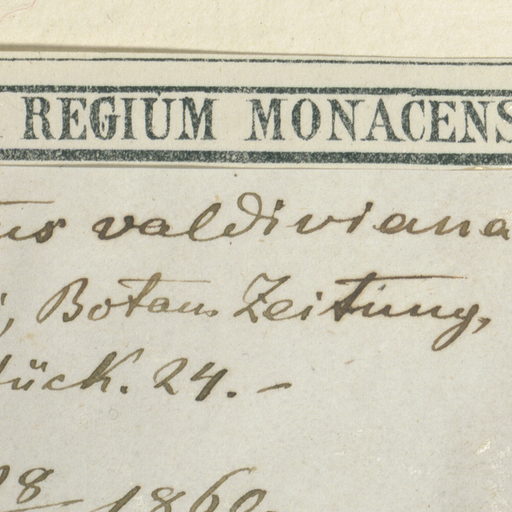 REGIUM MONACENS
us valdiviana
Botan. Zeitung,
tück. 24. –
28 1860.